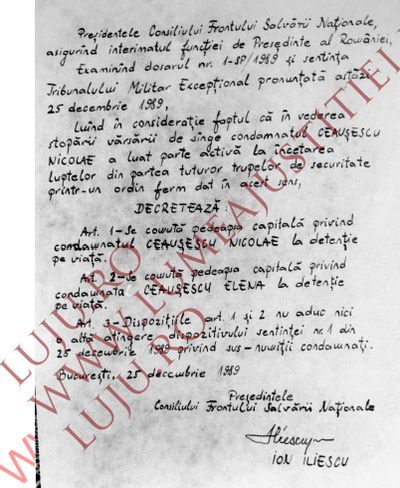 Președintele Consiliului Frontului Salvării Naționale,
asigurînd interimatul funcției de Președinte al României,
Examinînd dosarul nr. 1-SP/1989 și sentința
Tribunalului Militar Excepțional pronunțată astăzi
25 decembrie 1989,
Luînd în considerație faptul că în vederea
stopării vărsării de sînge condamnatul CEAUȘESCU
NICOLAE a luat parte activă la încetarea
luptelor din partea tuturor trupelor de securitate
printr-un ordin ferm dat în acest sens,
DECRETEAZĂ:
Art. 1-Se comută pedeapsa capitală privind
condamnatul CEAUȘESCU NICOLAE la detenție
pe viață.
Art. 2-Se comută pedeapsa capitală privind
condamnata CEAUȘESCU ELENA la detenție
pe viață.
Art. 3-Dispozițiile art. 1 și 2 nu aduc nici
o altă atingere dispozitivului sentinței nr. 1 din
25 decembrie 1989 privind sus-numiții condamnați.
București, 25 decembrie 1989
Președintele
Consiliului Frontului Salvării Naționale
Iliescu
ION ILIESCU
LUJU.RO
WWW.LUMEAJUSTITIEI
LUJU.RO